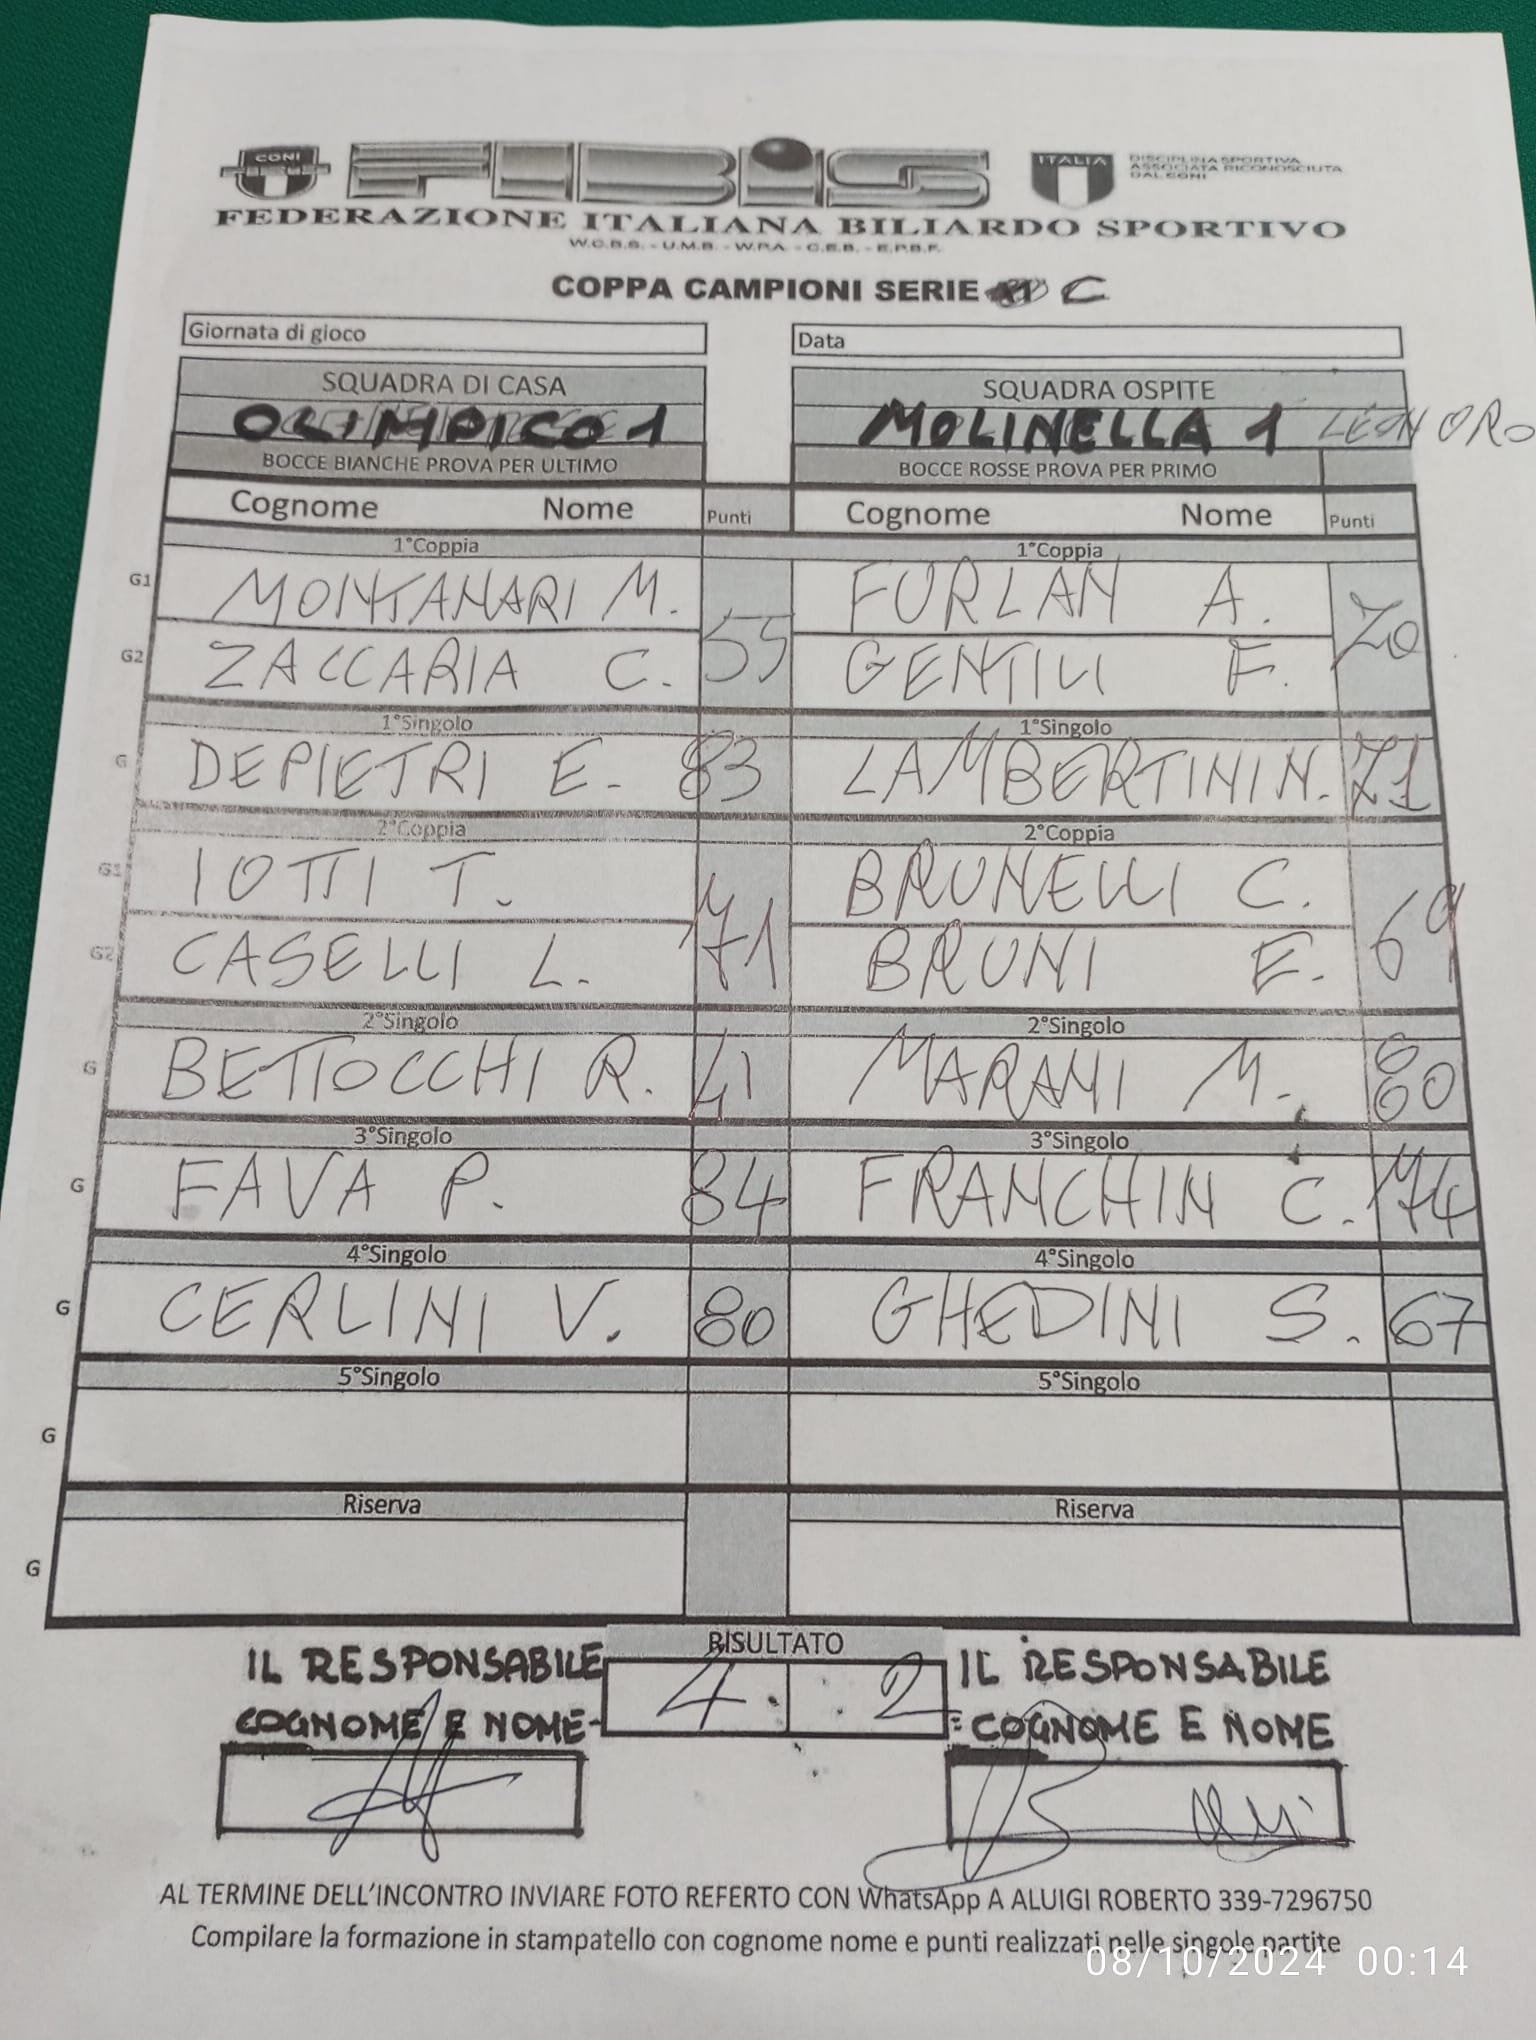 CONI FIBiS ITALIA DISCIPLINA SPORTIVA
ASSOCIATA RICONOSCIUTA
DAL CONI
FEDERAZIONE ITALIANA BILIARDO SPORTIVO
W.C.B.S. - U.M.B. - W.P.A. - C.E.B. - E.P.B.F.
COPPA CAMPIONI SERIE C
Giornata di gioco Data
SQUADRA DI CASA SQUADRA OSPITE
OLIMPICO 1 MOLINELLA 1 LEON ORO
BOCCE BIANCHE PROVA PER ULTIMO BOCCE ROSSE PROVA PER PRIMO
Cognome Nome Punti Cognome Nome Punti
1°Coppia 1°Coppia
G1 MONTANARI M. FURLAN A.
55 70
G2 ZACCARIA C. GENTILI F.
1°Singolo 1°Singolo
G DEPIETRI E. 83 LAMBERTINI N. 71
2°Coppia 2°Coppia
G1 IOTTI T. BRUNELLI C.
71 69
G2 CASELLI L. BRUNI E.
2°Singolo 2°Singolo
G BETTOCCHI R. 41 MARANI M. 80
3°Singolo 3°Singolo
G FAVA P. 84 FRANCHIN C. 74
4°Singolo 4°Singolo
G CERLINI V. 80 GHEDINI S. 67
5°Singolo 5°Singolo
G
Riserva Riserva
G
RISULTATO
IL RESPONSABILE 4 2 IL RESPONSABILE
COGNOME E NOME COGNOME E NOME
AL TERMINE DELL'INCONTRO INVIARE FOTO REFERTO CON WhatsApp A ALUIGI ROBERTO 339-7296750
Compilare la formazione in stampatello con cognome nome e punti realizzati nelle singole partite
08/10/2024 00:14